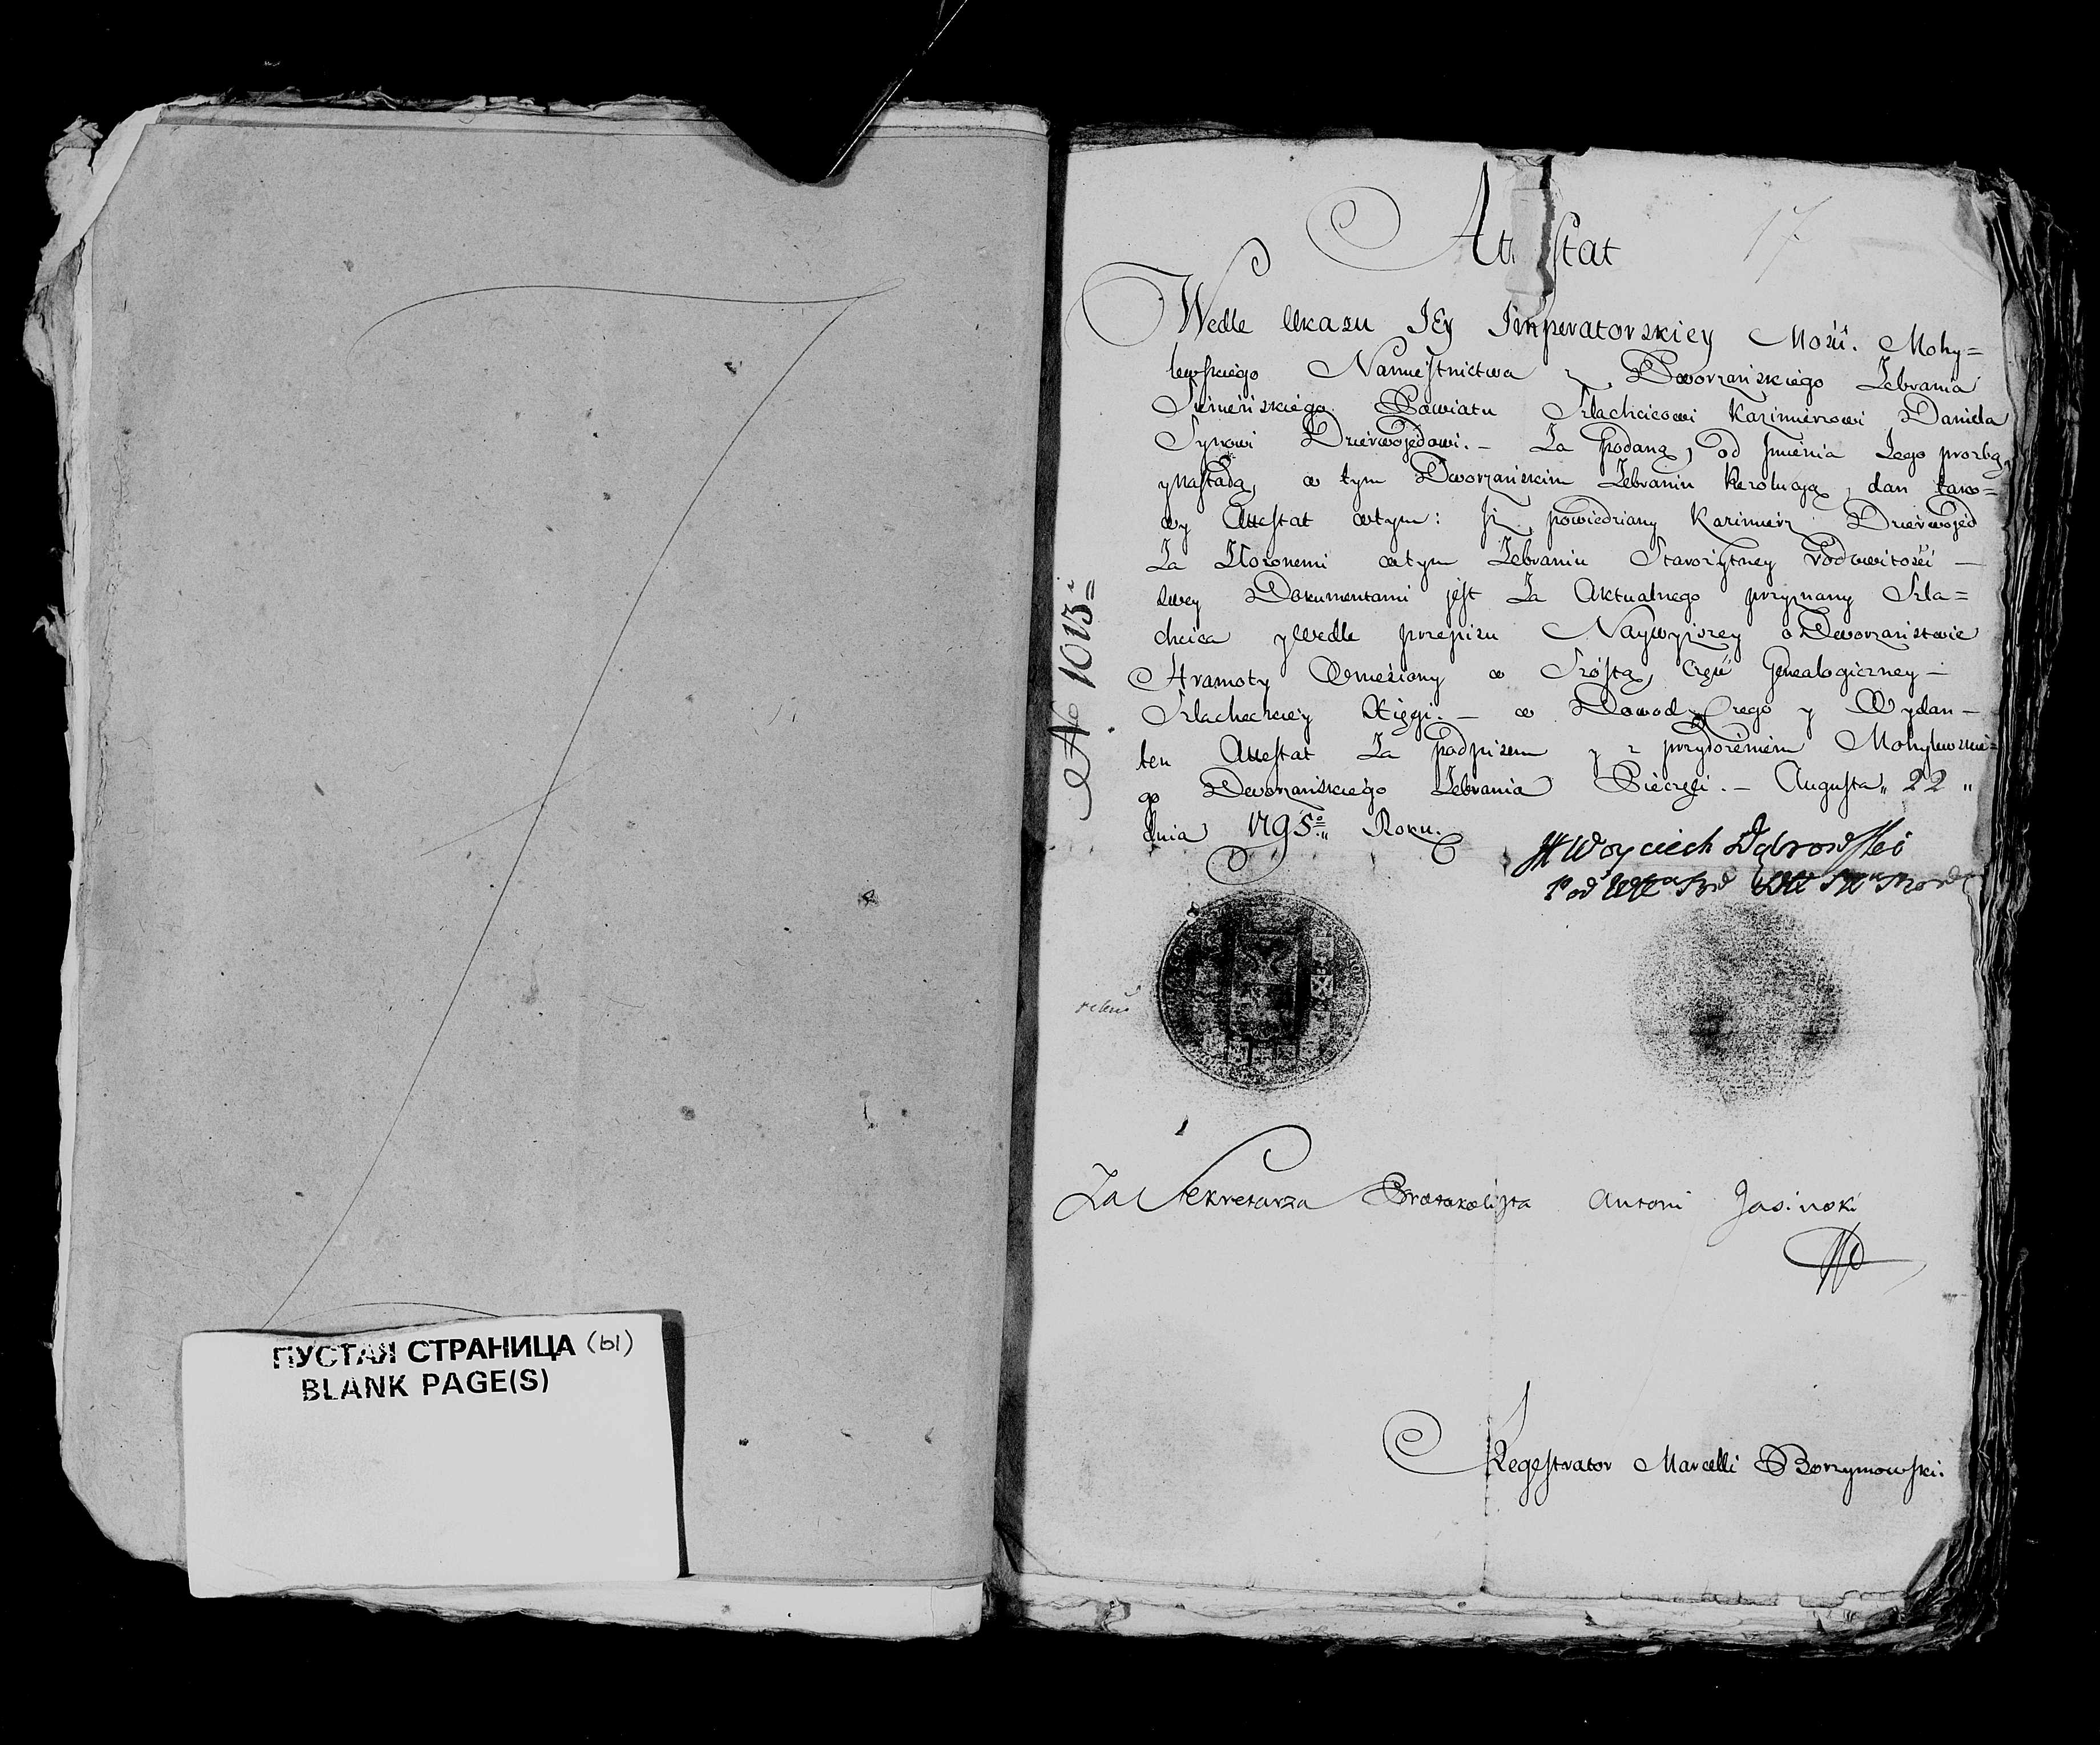 ПУСТАЯ СТРАНИЦА (Ы)
BLANK PAGE(S)
17
Attestat
Wedle Ukazu JEy Imperatorskiey Mości. Mohy=
lewskiego Namiestnictwa z Dworzańskiego Zebrania
Sieńieńskiego Powiatu Szlachcicowi Kazimierzowi Daniela
Synowi Dzierwojedowi. – Za podaną, od Jmienia Jego prozbą,
y nastałą, w tym Dworzańskim Zebraniu Rezolucyą, dan takow=
wy Attestat wtym: Jż powiedziany Kazimierz Dzierwojed
Za Złożonemi wtym Zebraniu Starożytney rodowitości –
swey Dokumentami jest Za Aktualnego przyznany Szla=
chcica y Wedle przepisu Naywyższey o Dworzaństwie
Hramoty Wnieśiony w Szóstą, Część Genealogiczney –
Szlacheckiey Xięgi. – w Dowod Czego y Wydan –
ten Attestat Za podpisem y z przyłożeniem Mohylewskie=
go Dworzańskiego Zebrania Pieczęci. – Augusta „22„
dnia 1795º Roku.
No 1013
Woyciech Dąbrowski
Za Sekretarza Protokolista Antoni Jasinski
Regestrator Marcelli Borzymowski.